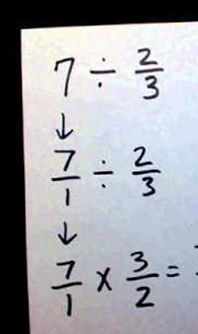 7 ÷ 2/3
↓
7/1 ÷ 2/3
↓
7/1 × 3/2 =